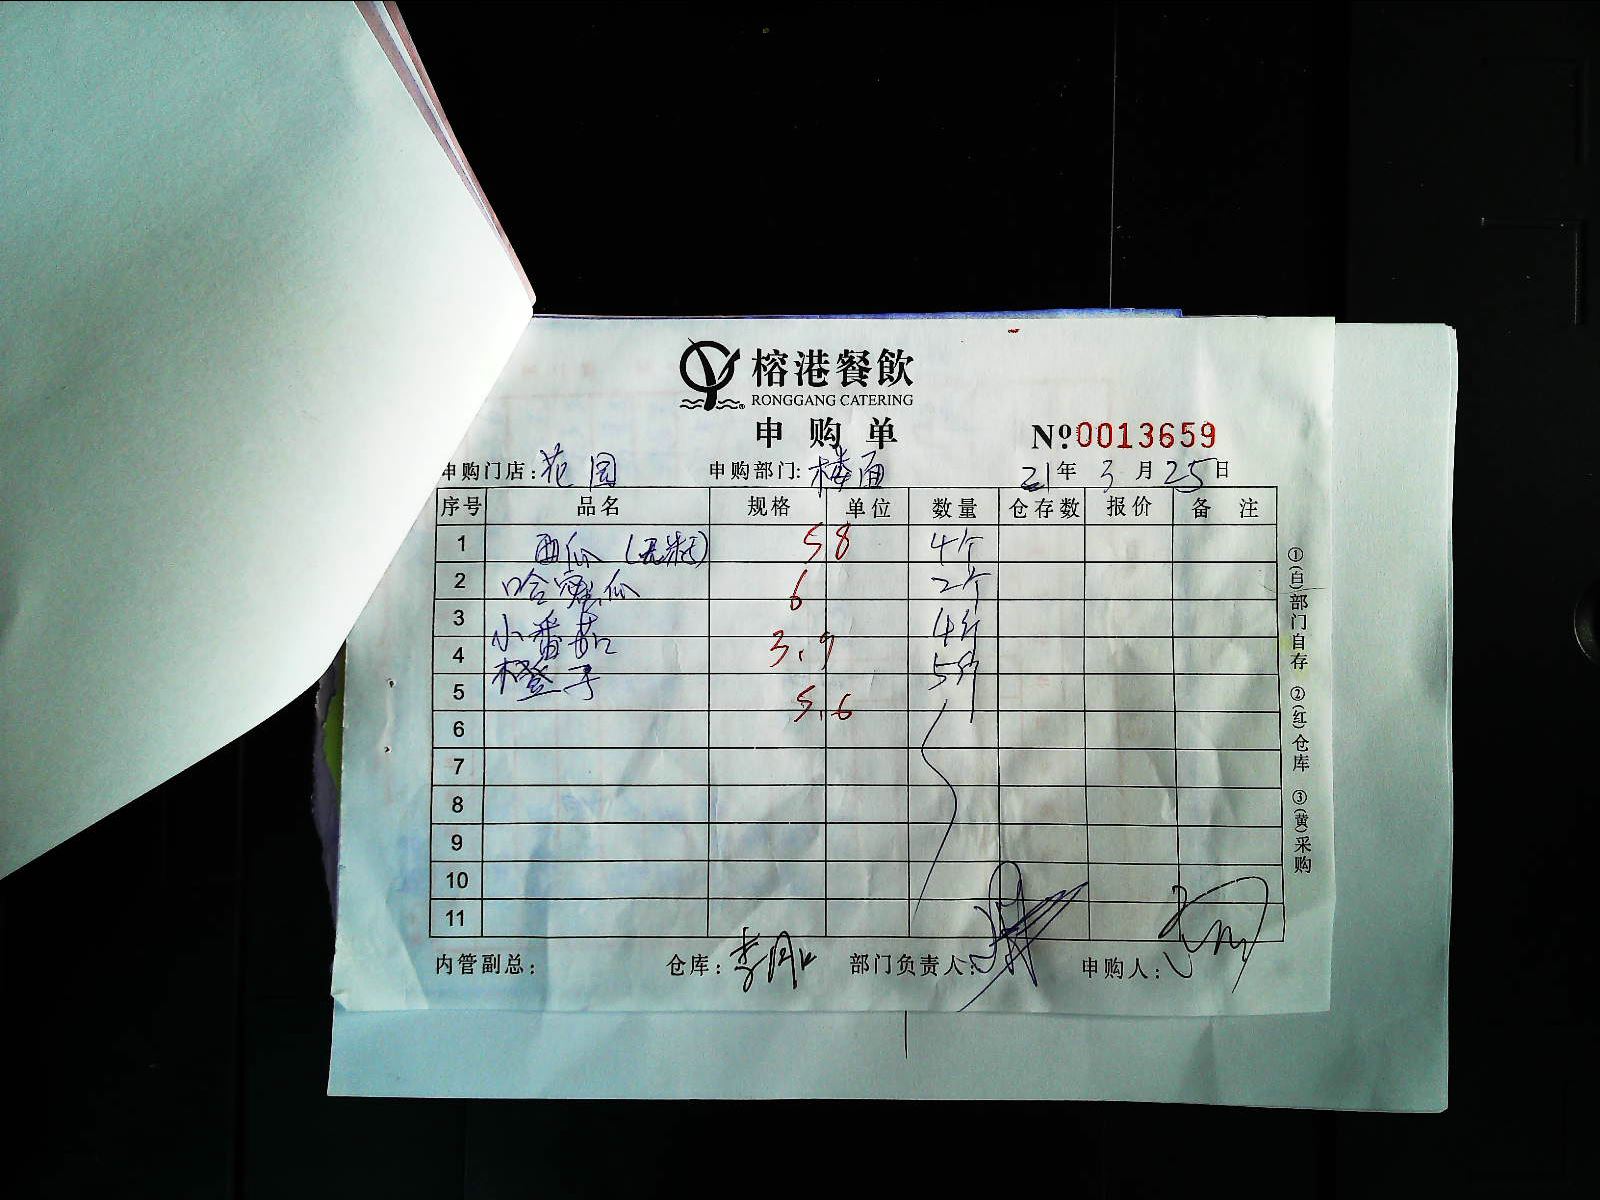 榕港餐飲
RONGGANG CATERING
申购单
№0013659
申购门店:花园 申购部门:楼面 21年3月25日
序号 品名 规格 单位 数量 仓存数 报价 备注
1 西瓜(无籽) 58 4个
2 哈密瓜 6 2个
3 小番茄 3.9 4斤
4 橙子 5.6 5斤
5
6
7
8
9
10
11
内管副总: 仓库:李 部门负责人: 申购人:
①(白)部门自存 ②(红)仓库 ③(黄)采购